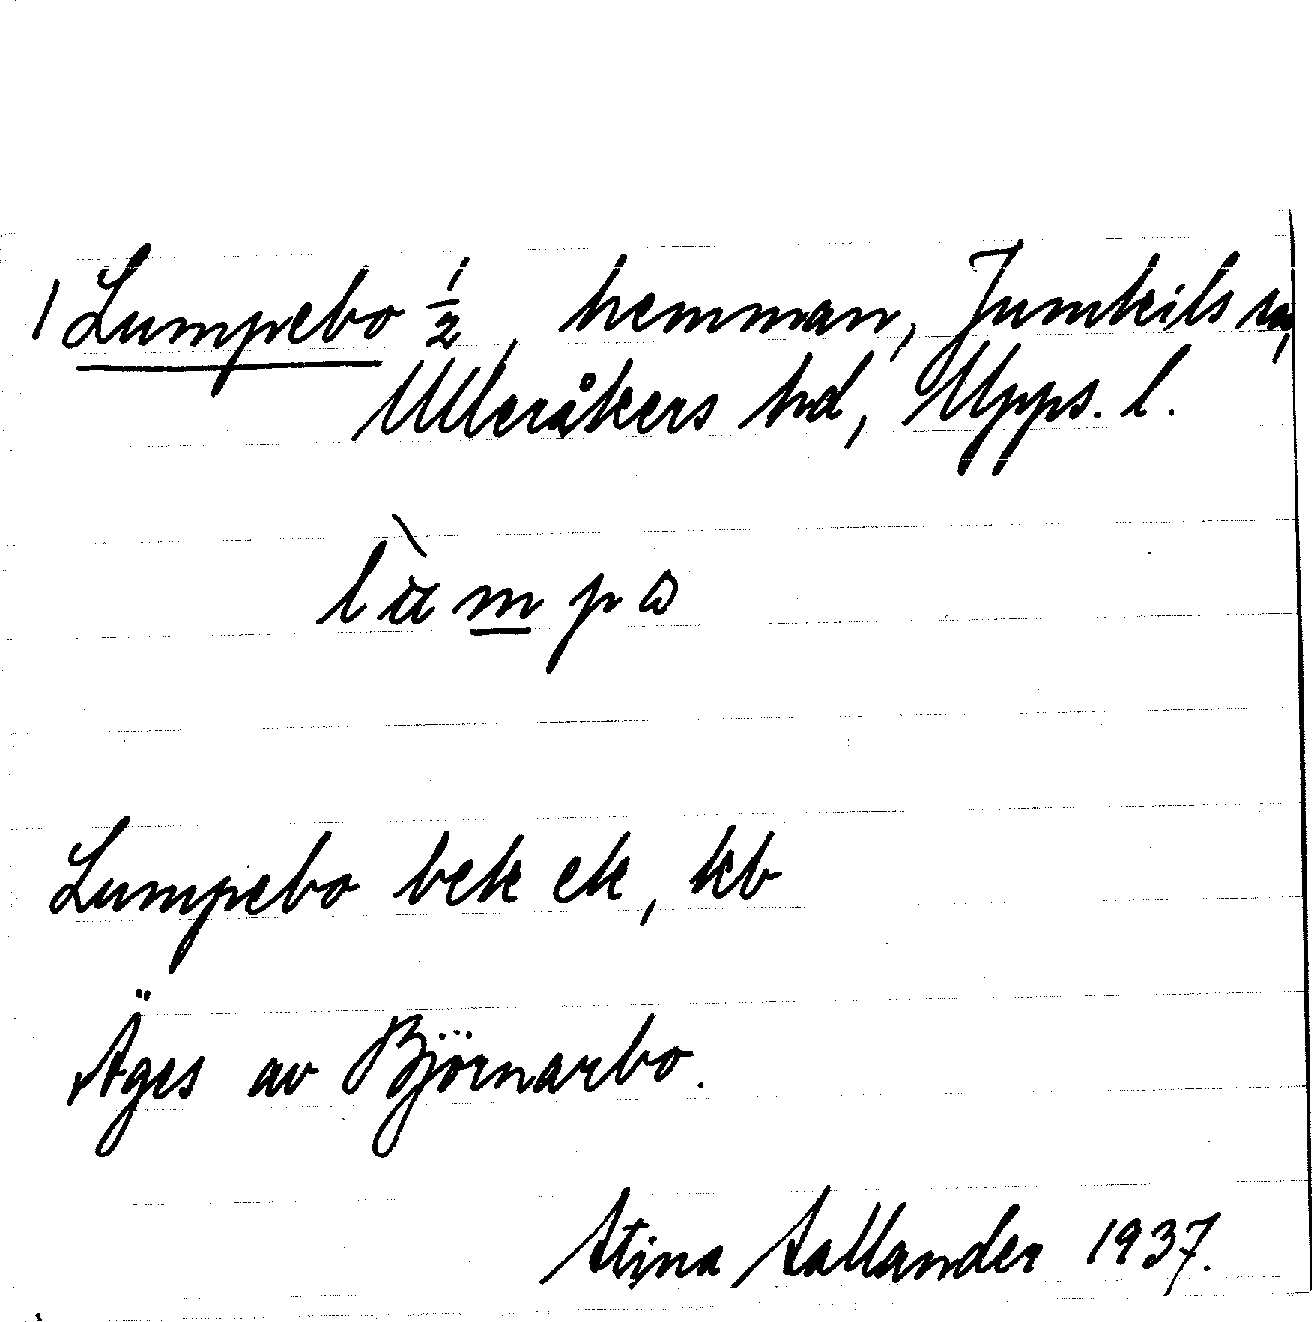 1 Lumpebo 1/2, hemman, Jumkils sn,
Ulleråkers hd, Upps. l.
Lumpebo bek ek, kb
Äges av Björnarbo.
Stina Sallander 1937.